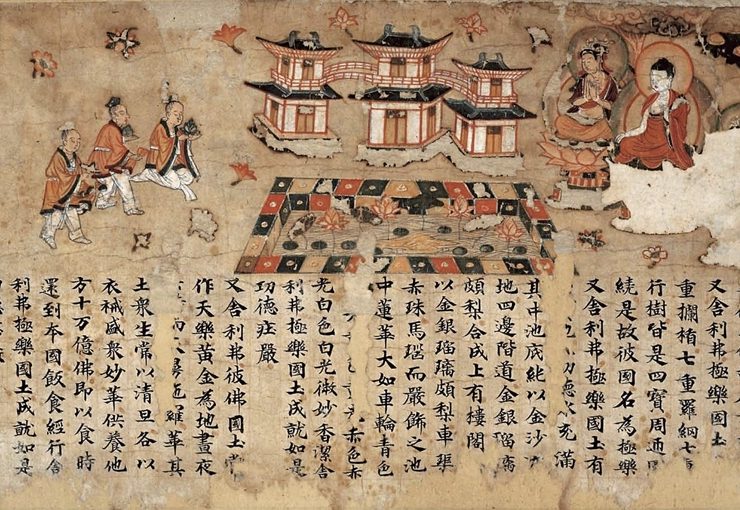 又舍利弗極樂國土
重欄楯七重羅網七
行樹皆是四寶周迊
繞是故彼國名為極樂
又舍利弗極樂國土有
功德 充滿
其中池底純以金沙
地四邊階道金銀瑠璃
頗梨合成上有樓閣
以金銀瑠璃頗梨車璖
赤珠馬瑙而嚴飾之池
中蓮華大如車輪青色
赤色赤
光白色白光微妙香潔舍
利弗極樂國土成就如是
功德莊嚴
又舍利弗彼佛國土常
作天樂黃金為地晝夜
而 羅華其
土衆生常以清旦各以
衣祴盛衆妙華供養他
方十万億佛即以食時
還到本國飯食經行舍
利弗極樂國土成就如是